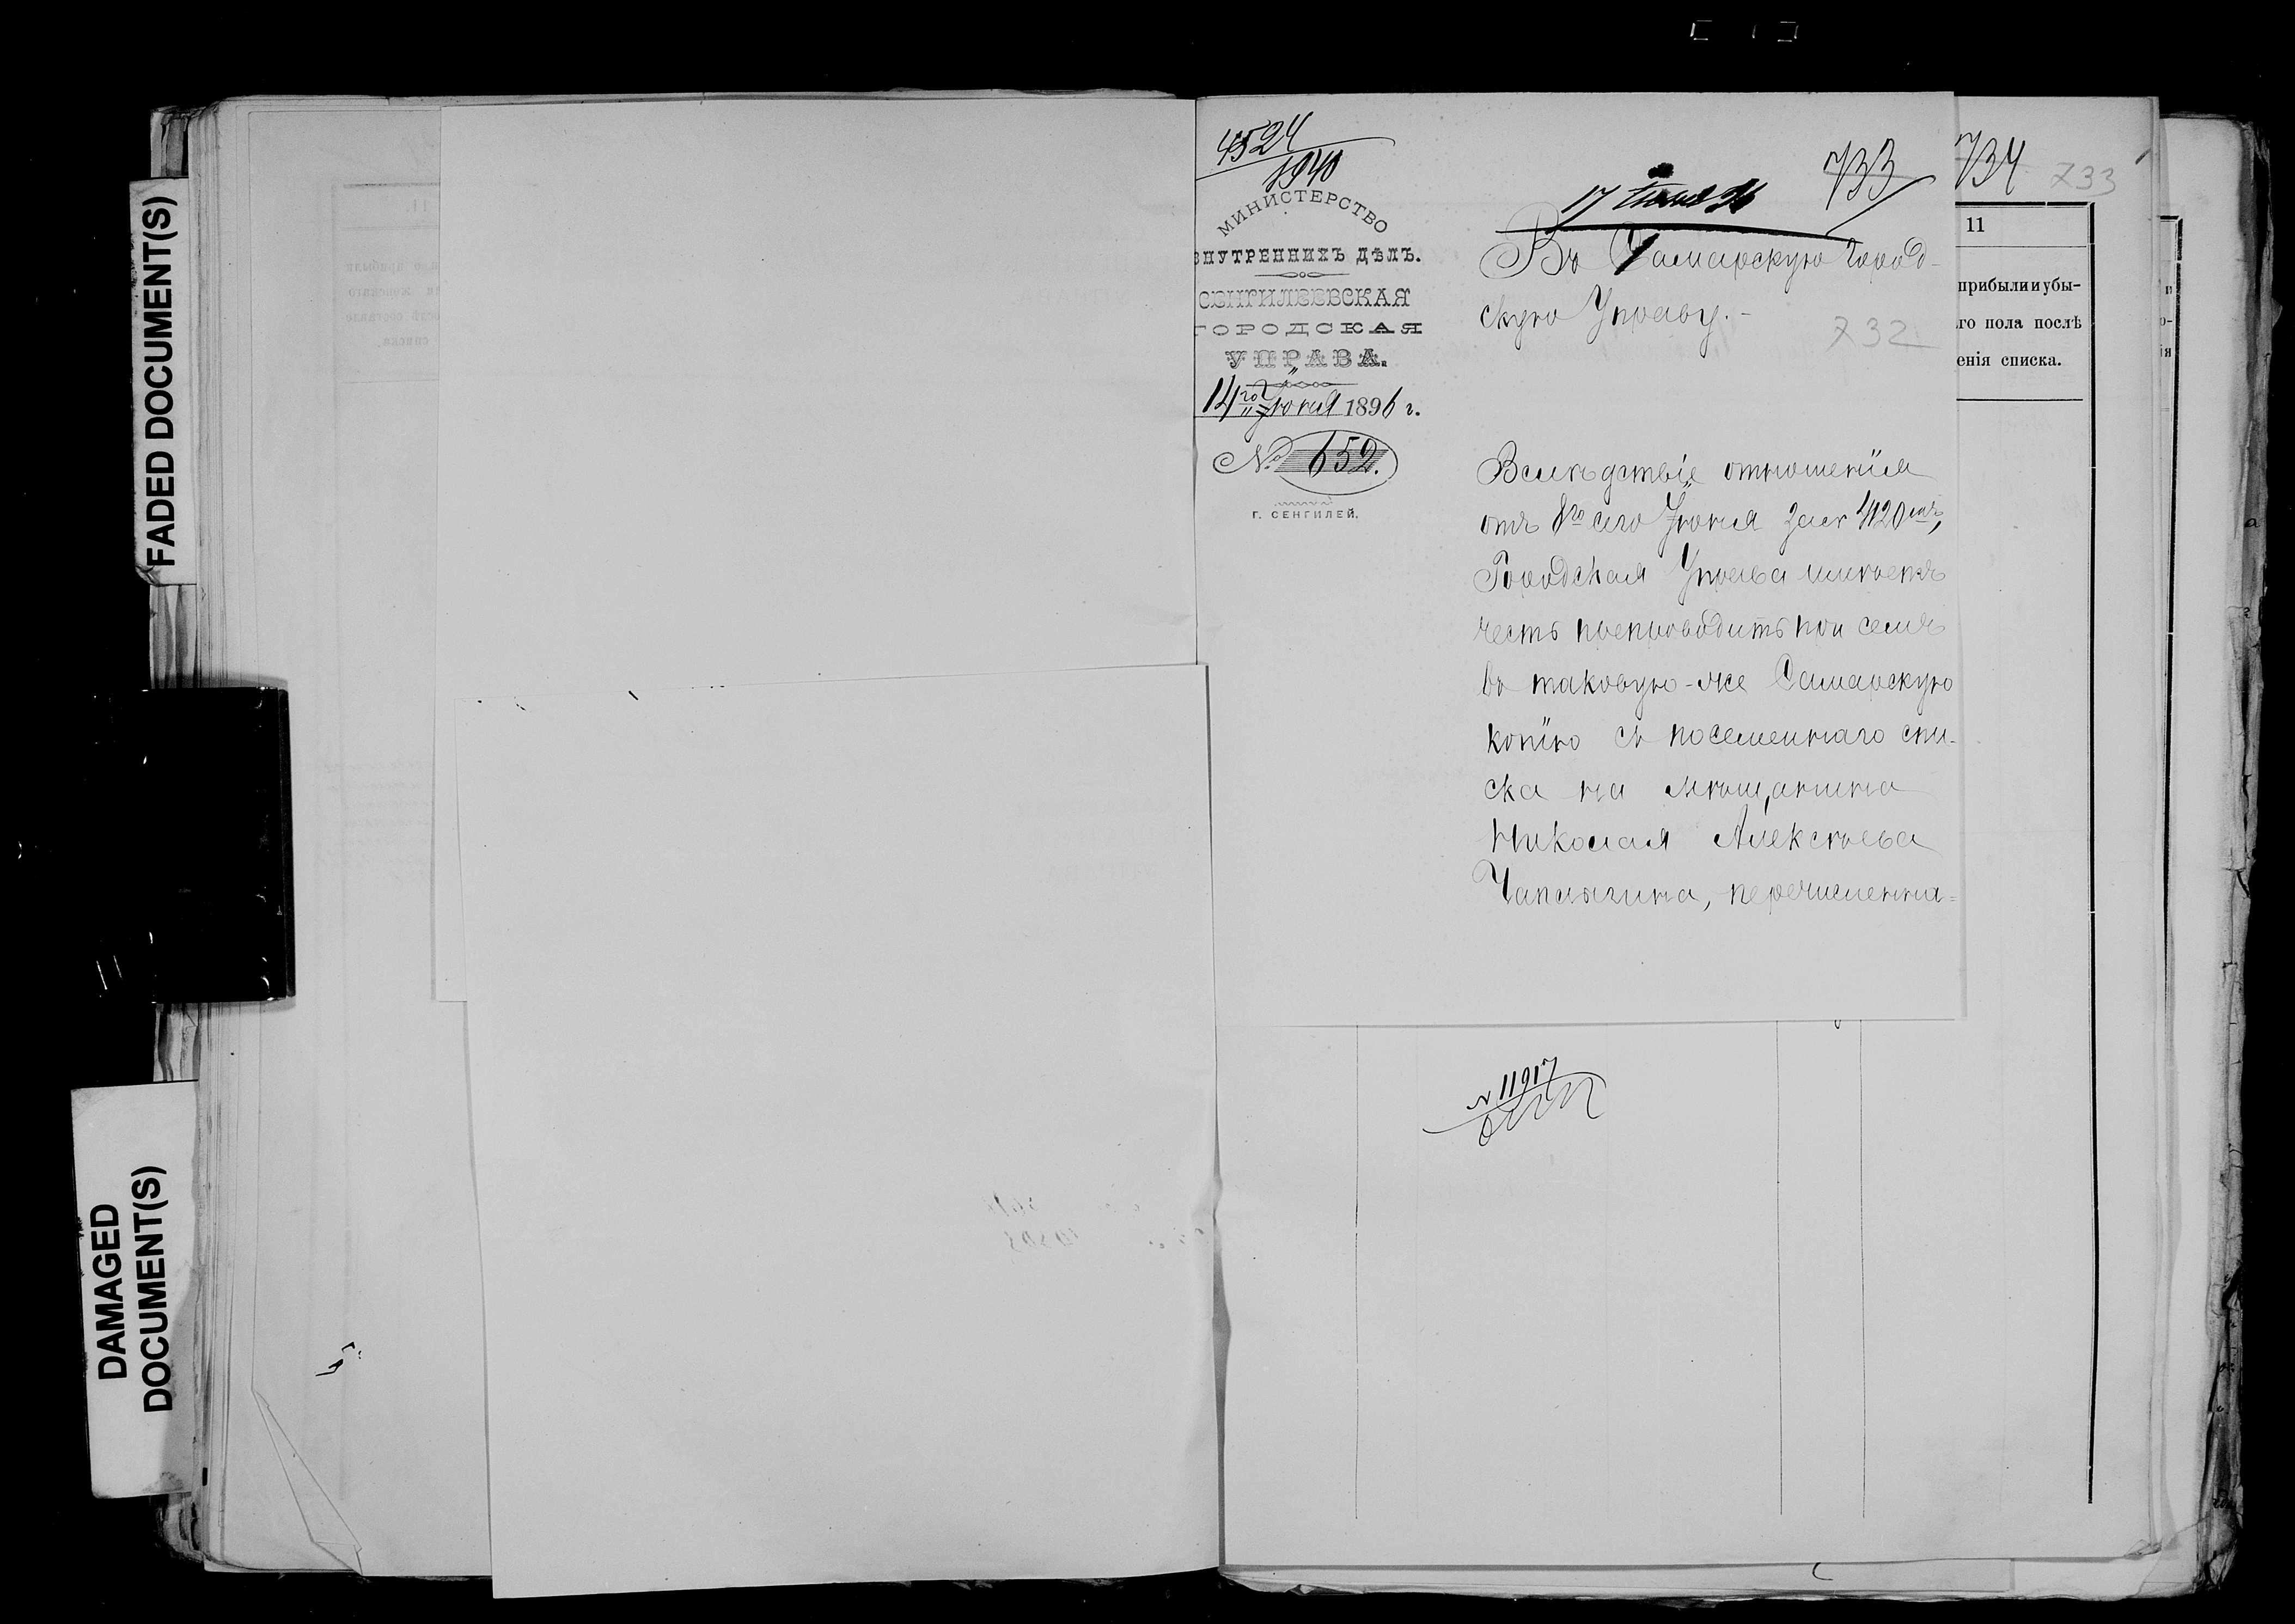 FADED DOCUMENT(S)
DAMAGED
DOCUMENT(S)
4524
1940
МИНИСТЕРСТВО
ВНУТРЕННИХЪ ДѢЛЪ.
СЕНГИЛЕЕВСКАЯ
ГОРОДСКАЯ
УПРАВА.
14го Іюня 1896 г.
№ 652.
г. СЕНГИЛЕЙ.
17 Іюня 96
733
Въ Самарскую Город-
скую Управу.-
732
Вслѣдствіе отношенія
отъ 8го сего Іюня за № 4120мъ,
Городская Управа имѣетъ
честь препроводить при семъ
въ таковую-же Самарскую
копію съ посемейнаго спи-
ска на мѣщанина
Николая Алексѣева
Чаплыгина, перечисленна=
734
733
11
прибыли и убы-
го пола послѣ
енія списка.
№ 11917